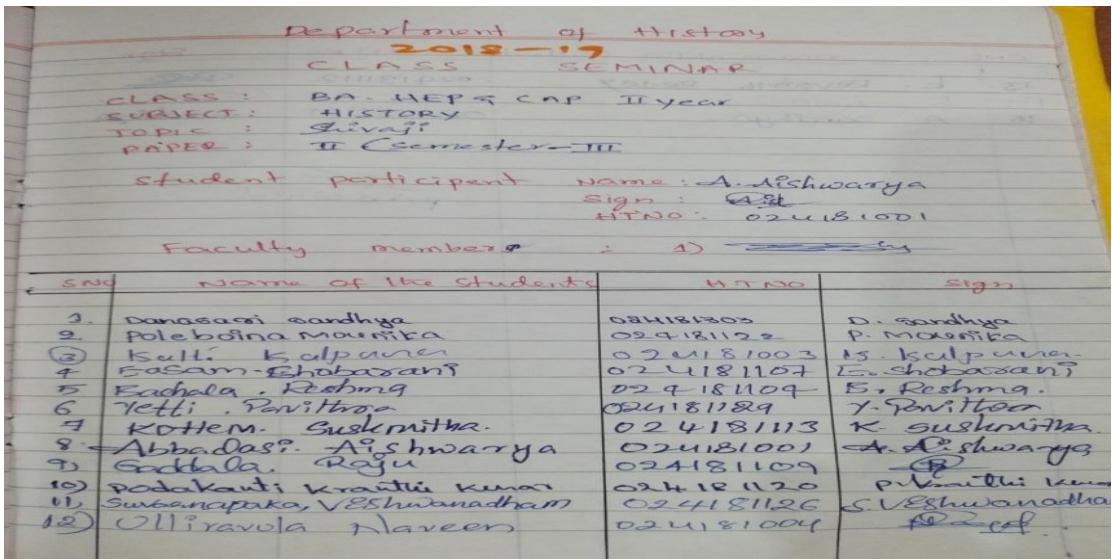 Department of History
2018-19
CLASS SEMINAR
CLASS : BA. HEP & CAP II year
SUBJECT : HISTORY
TOPIC : Shivaji
PAPER : II (semester-III
Student participent Name : A. Aishwarya
Sign :
HTNO : 024181001
Faculty members : 1)
SNO Name of the Students HTNO Sign
1. Danasari Sandhya 024181303 D. Sandhya
2. Poleboina Mounika 024181122 P. Mounika
3 Kulti Kalpana 024181003 K. Kalpana
4 Easam. Shobarani 024181107 E. Shobarani
5 Eachala. Reshma 024181104 E. Reshma.
6 Yetti. Pavithra 024181129 Y. Pavithra
7 Kottem. Sushmitha. 024181113 K Sushmitha.
8. Abbadasi. Aishwarya 024181001 A. Aishwarya
9) Gaddala. Raju 024181109
10) Podakanti Kranthi Kumar 024181120 P. Kranthi Kumar
11) Suwarnapaka, VEShwanadham 024181126 S. VEShwanadha
12) Ulliravula Naveen 024181004